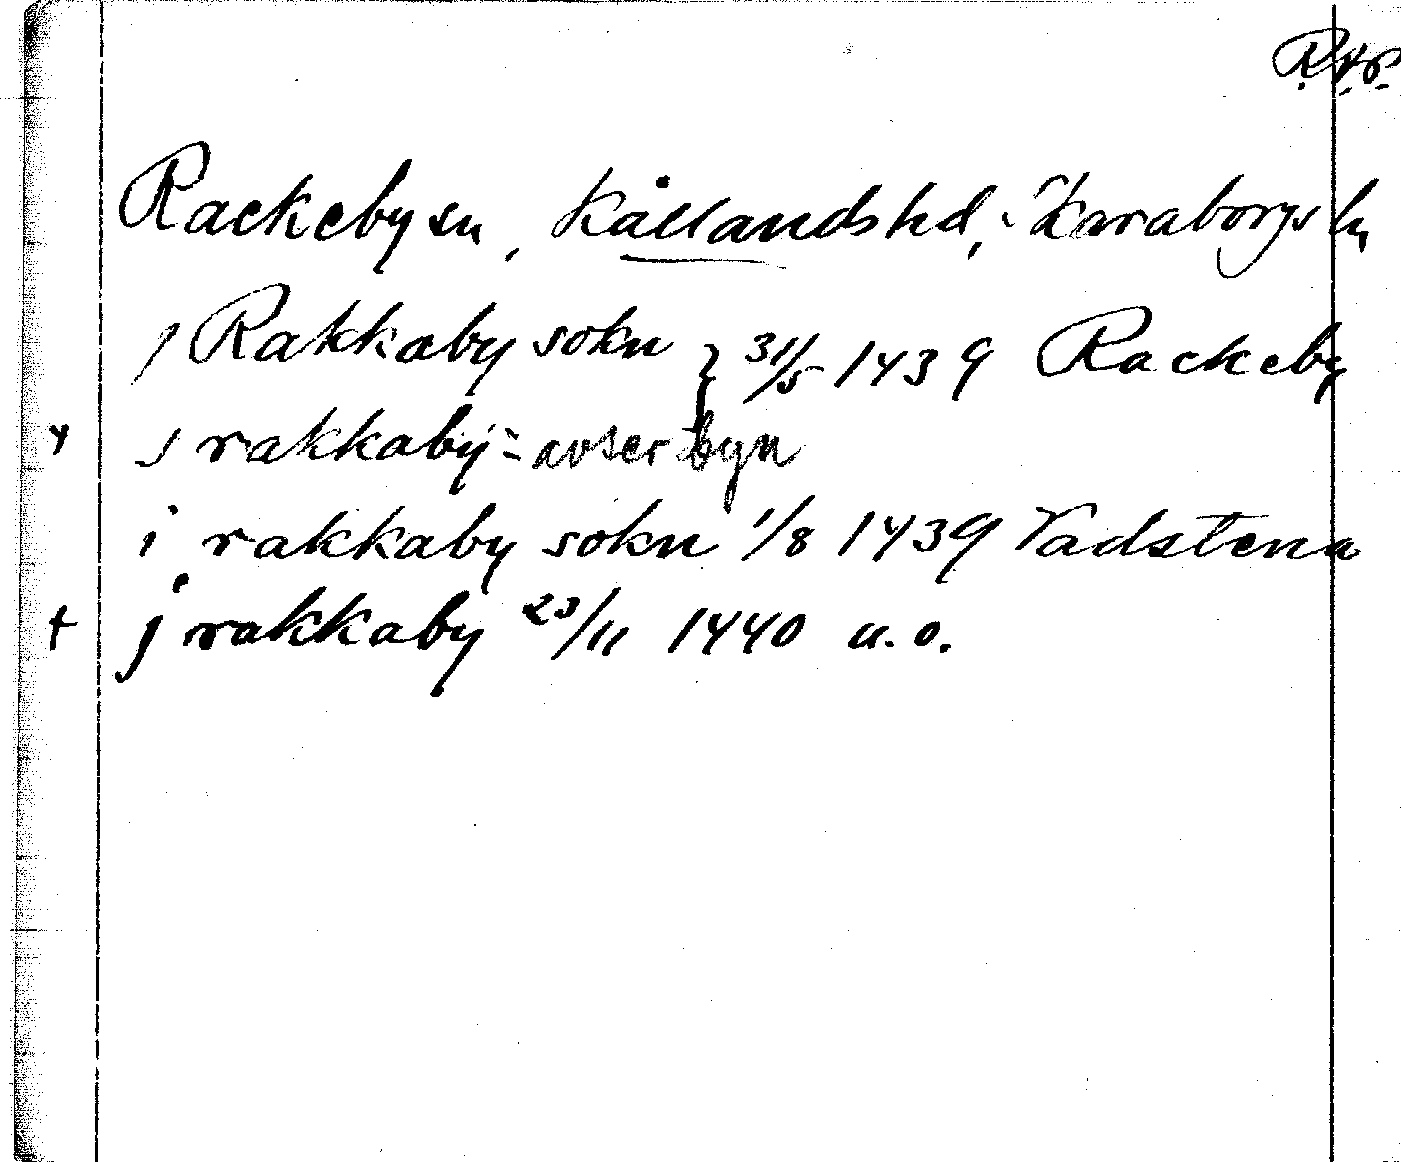 R.A.P.
Rackeby sn, Kållandshd, Skaraborgs ln
j Rakkaby sokn } 31/5 1439 Rackeby
x j rakkaby = avser byn
i rakkaby sokn 1/8 1439 Vadstena
+ j rakkaby 23/11 1440 u.o.